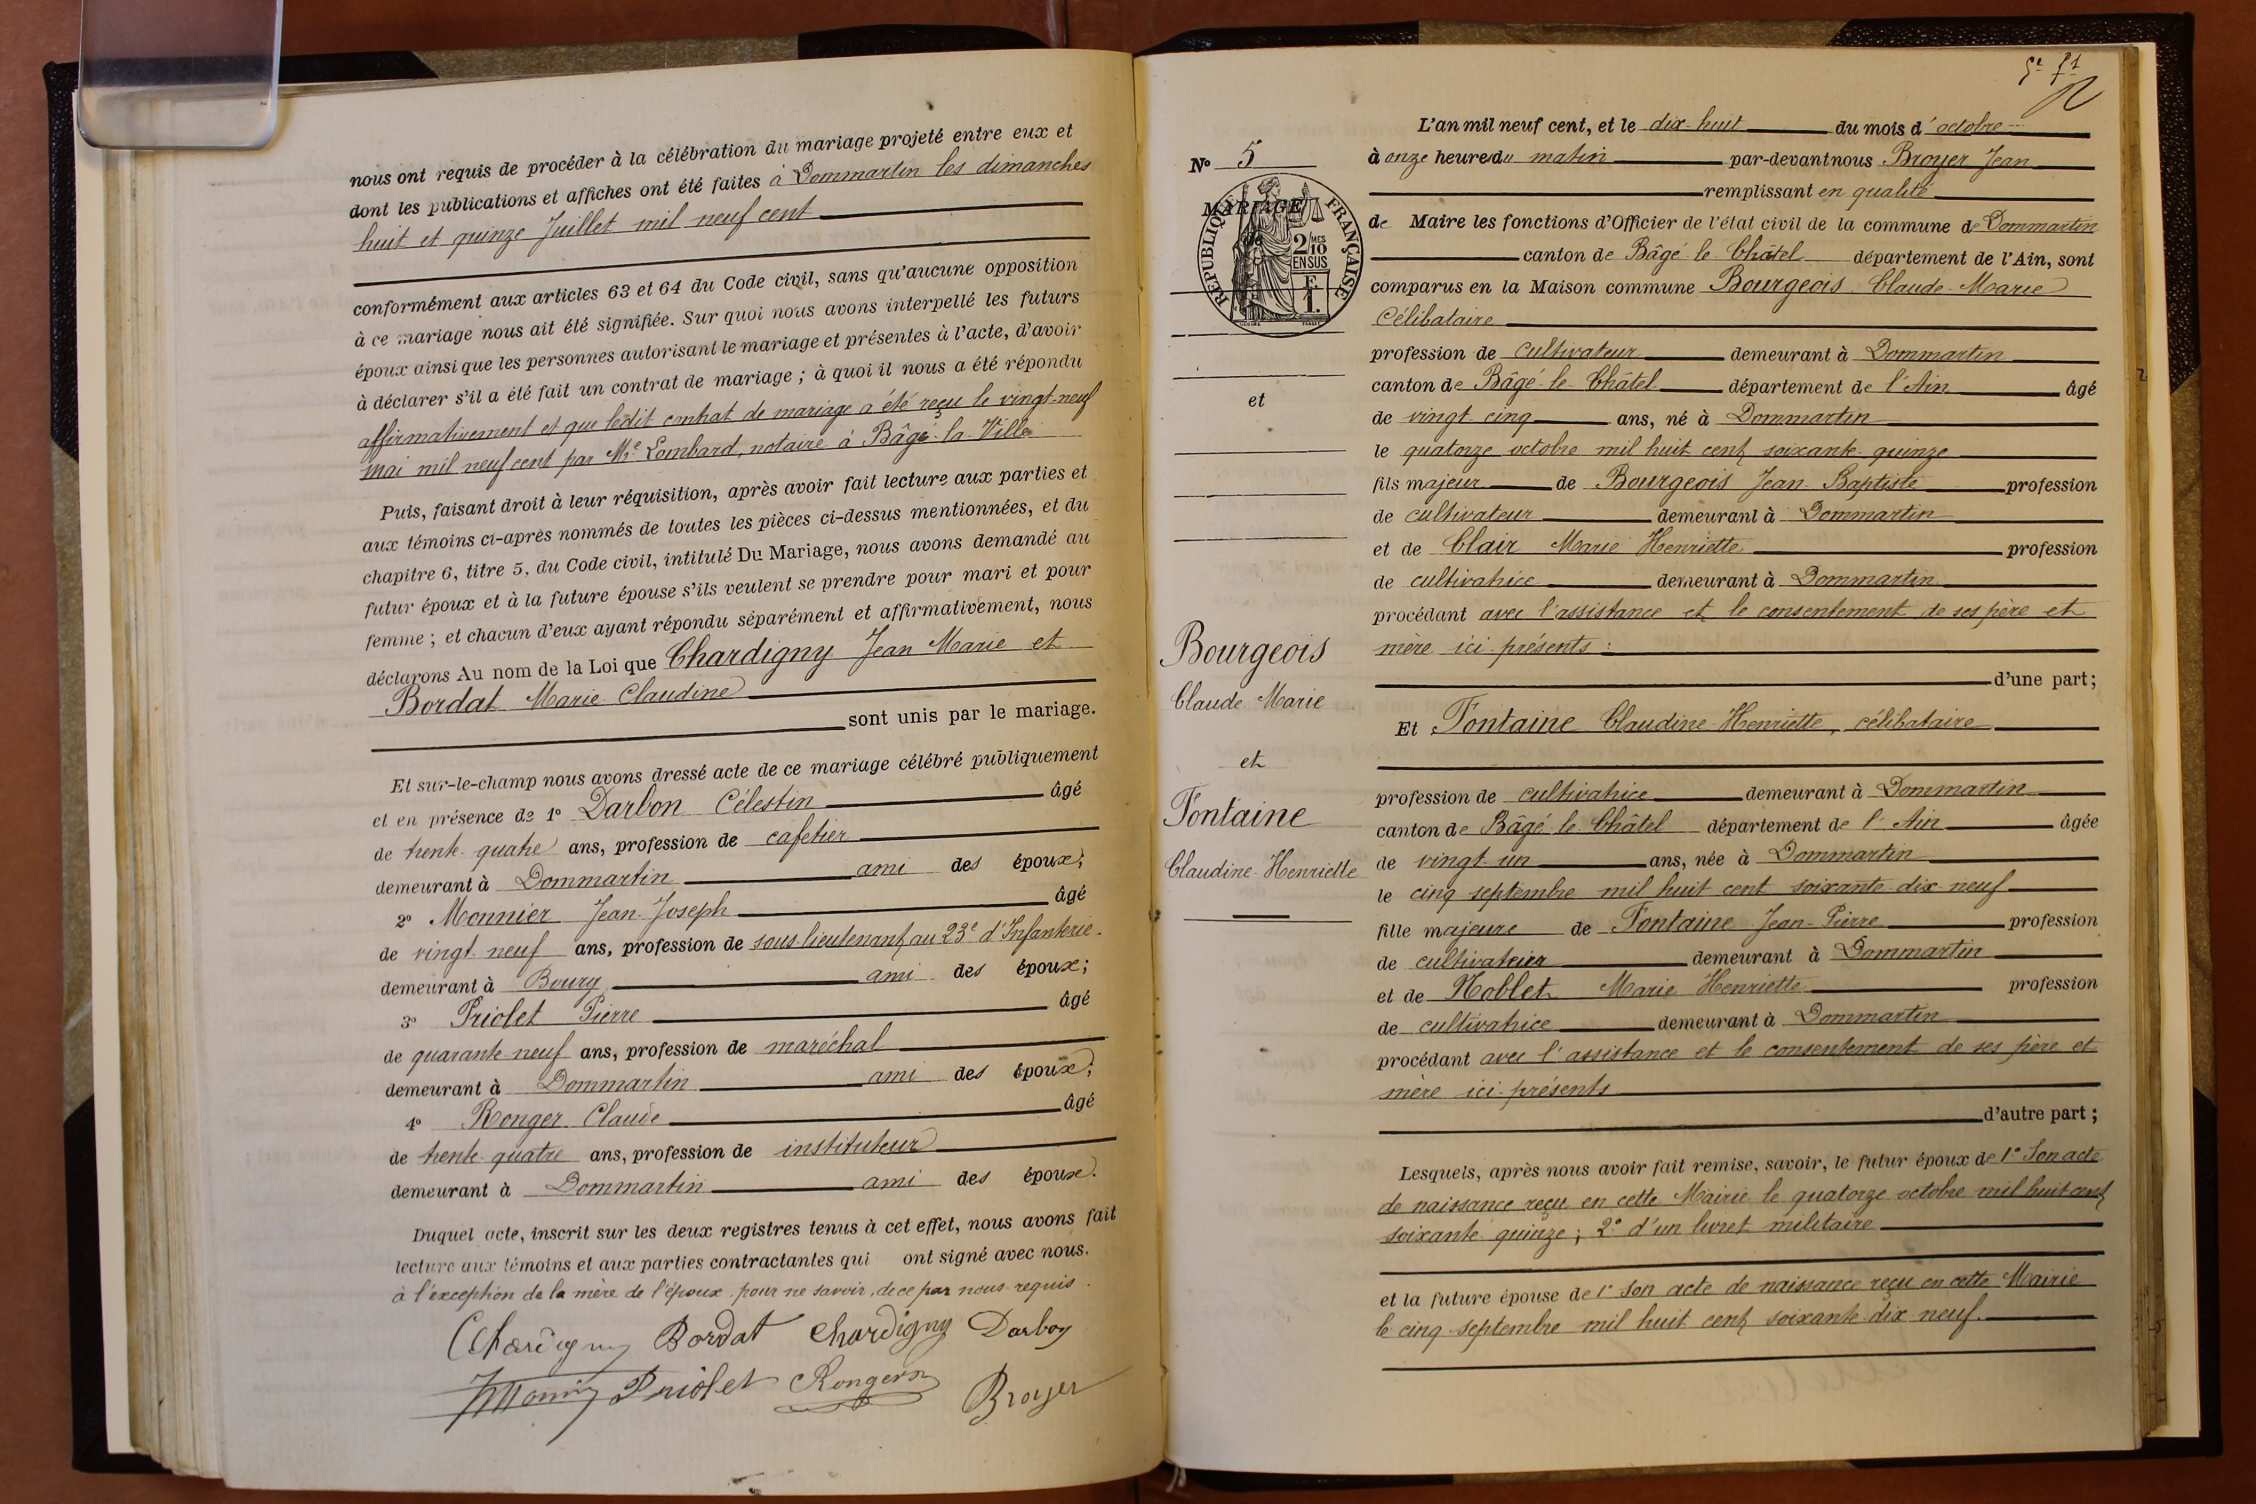 nous ont requis de procéder à la célébration du mariage projeté entre eux et
dont les publications et affiches ont été faites à Dommartin les dimanches
huit et quinze Juillet mil neuf cent
conformément aux articles 63 et 64 du Code civil, sans qu'aucune opposition
à ce mariage nous ait été signifiée. Sur quoi nous avons interpellé les futurs
époux ainsi que les personnes autorisant le mariage et présentes à l'acte, d'avoir
à déclarer s'il a été fait un contrat de mariage ; à quoi il nous a été répondu
affirmativement et que ledit contrat de mariage a été reçu le vingt-neuf
mai mil neuf cent par Me Lombard, notaire à Bâgé-la-Ville
Puis, faisant droit à leur réquisition, après avoir fait lecture aux parties et
aux témoins ci-après nommés de toutes les pièces ci-dessus mentionnées, et du
chapitre 6, titre 5, du Code civil, intitulé Du Mariage, nous avons demandé au
futur époux et à la future épouse s'ils veulent se prendre pour mari et pour
femme ; et chacun d'eux ayant répondu séparément et affirmativement, nous
déclarons Au nom de la Loi que Chardigny Jean Marie et
Bordat Marie Claudine
sont unis par le mariage.
Et sur-le-champ nous avons dressé acte de ce mariage célébré publiquement
et en présence de 1° Darbon Célestin âgé
de trente-quatre ans, profession de cafetier
demeurant à Dommartin ami des époux;
2° Monnier Jean-Joseph âgé
de vingt-neuf ans, profession de sous-lieutenant au 23e d'Infanterie.
demeurant à Bourg ami des époux;
3° Priolet Pierre âgé
de quarante-neuf ans, profession de maréchal
demeurant à Dommartin ami des époux;
4° Ronger Claude âgé
de trente-quatre ans, profession de instituteur
demeurant à Dommartin ami des époux.
Duquel acte, inscrit sur les deux registres tenus à cet effet, nous avons fait
lecture aux témoins et aux parties contractantes qui ont signé avec nous.
à l'exception de la mère de l'époux pour ne savoir, de ce par nous requis.
Chardigny Bordat Chardigny Darbon
Monnier Priolet Ronger
Broyer
N° 5
MARIAGE
de
RÉPUBLIQUE FRANÇAISE
2/10MES
EN SUS
F.
1.
et
Bourgeois
Claude Marie
et
Fontaine
Claudine-Henriette
L'an mil neuf cent, et le dix-huit du mois d'octobre
à onze heure du matin par-devant nous Broyer Jean
remplissant en qualité
de Maire les fonctions d'Officier de l'état civil de la commune de Dommartin
canton de Bâgé-le-Châtel département de l'Ain, sont
comparus en la Maison commune Bourgeois Claude-Marie
Célibataire
profession de cultivateur demeurant à Dommartin
canton de Bâgé-le-Châtel département de l'Ain âgé
de vingt-cinq ans, né à Dommartin
le quatorze octobre mil huit cent soixante-quinze
fils majeur de Bourgeois Jean-Baptiste profession
de cultivateur demeurant à Dommartin
et de Clair Marie Henriette profession
de cultivatrice demeurant à Dommartin
procédant avec l'assistance et le consentement de ses père et
mère ici présents :
d'une part;
Et Fontaine Claudine-Henriette, célibataire
profession de cultivatrice demeurant à Dommartin
canton de Bâgé-le-Châtel département de l'Ain âgée
de vingt-un ans, née à Dommartin
le cinq septembre mil huit cent soixante-dix-neuf
fille majeure de Fontaine Jean-Pierre profession
de cultivateur demeurant à Dommartin
et de Noblet Marie Henriette profession
de cultivatrice demeurant à Dommartin
procédant avec l'assistance et le consentement de ses père et
mère ici présents
d'autre part ;
Lesquels, après nous avoir fait remise, savoir, le futur époux de 1° Son acte
de naissance reçu en cette Mairie le quatorze octobre mil huit cent
soixante-quinze ; 2° d'un livret militaire
et la future épouse de 1° Son acte de naissance reçu en cette Mairie
le cinq septembre mil huit cent soixante-dix-neuf.